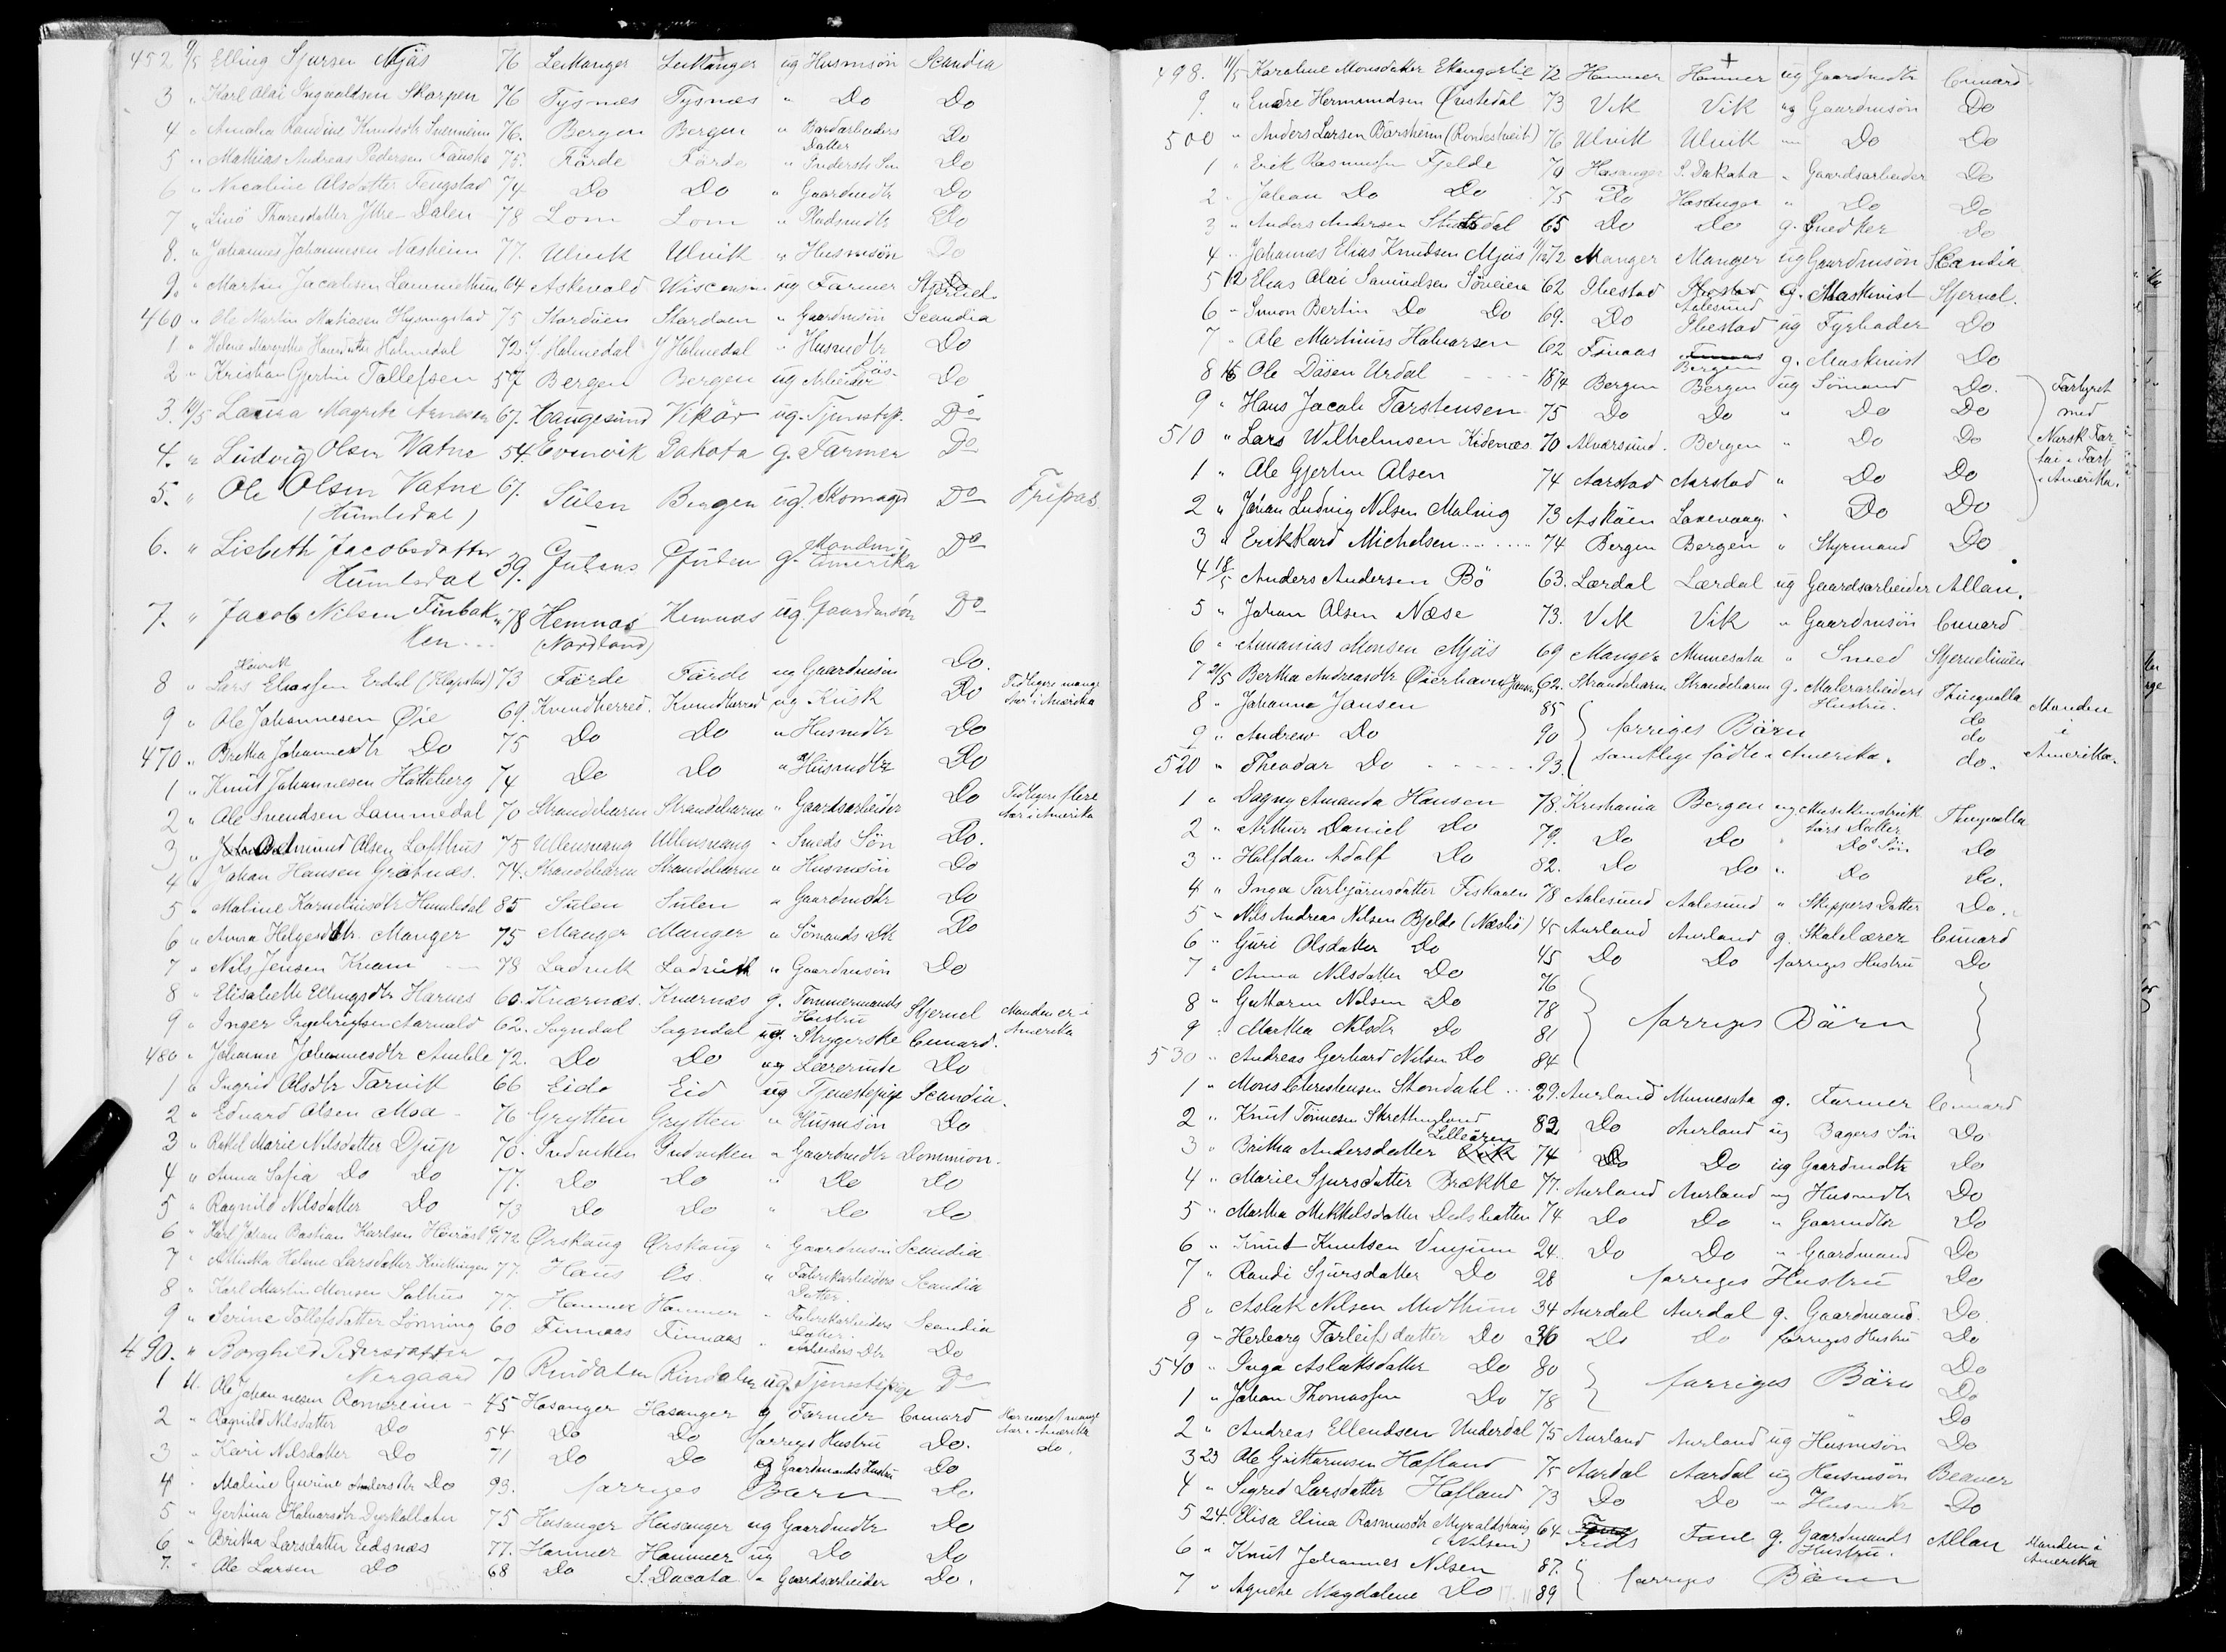 452 9/5 Elling Sjursen Mjås 76 Leikanger Leikanger ug Husmsön Scandia
3 " Karl Olai Ingvaldsen Skarpen 76 Tysnes Tysnes " Do Do
4 " Amalia Randine Knudsdtr 76. Bergen Bergen " Bordarbeiders Datter Do
5 " Mathias Andreas Pedersen Fauske 75. Förde Förde " Do
6 " Nicoline Olsdatter Fengstad 74 Do Do " Gaardmdtr Do
7 " Thoresdatter Ytre-Dalen 78 Lom Lom " Pladsmdtr Do
8. " Johannes Johannesen Næsheim 77. Ulvik Ulvik " Husmsön Do
9. " Martin Jacobsen 64 Askevold Wisconsin ug Farmer Stjernel.
460 " Ole Martin Mathiasen 75 Stordöen Stordöen " Gaardmsön Scandia
1 " Helene Margrethe Hansdatter Holmedal 72. Y. Holmedal Y Holmedal " Husmdtr Do
2 " Kristian Gjertin Tollefsen 57 Bergen Bergen ug Arbeider Do
3. 10/5 Laura Magrete Arnesen 67. Haugesund Vikör ug. Tjenestep. Do
4. " Ludvig Olsen Vatne 54. Evenvik Dakota g. Farmer Do
5. " Ole Olsen Vatne 67. Sülen Bergen ug. Skomager Do Fripas
(Humledal)
6. " Lisbeth Jacobsdatter
Humledal 39. Gulens Gulen g. Manden i Amerika Do
7. " Jacob Nilsen Finbak- 78 Hemnæs Hemnæs ug. Gaardmsön Do
ken... (Nordland)
8 " Lars Henrik Eliassen Erdal (Klopstad) 73 Förde Förde ug Gaardmsön Do.
9 " Ole Johannesen Øie 69. Kvindherred. Kvindherred ug Kusk Do Tidligere mange Aar i Amerika
470 " Britha Johannesdtr Do 75 Do Do " Husmdtr Do
1 " Knut Johannesen Hatteberg 74 Do Do " Husmdtr Do
2 " Ole Svendsen Lammedal 70 Strandebarm Strandebarm " Gaardsarbeider Do Tidligere flere Aar i Amerika
3 " Odmund Olsen Lofthus 75 Ullensvang Ullensvang " Smeds Sön Do.
4 " Johan Hansen Grötnæs. 74. Strandebarm Strandebarm " Husmsön Do
5 " Maline Korneliusdtr Humledal 85 Sulen Sulen " Gaardmdtr Do
6 " Anna Helgesdtr. Manger 75 Manger Manger " Sömands Dtr Do
7 " Nils Jensen Kvam 78 Ladvik Ladvik " Gaardmsön Do
8 " Elisabeth Ellingsdtr Harnes 60. Kværnæs. Kværnæs g. Tömmermands Hustru Stjernel Manden er i Amerika
9 " Inger Ingebrigtsen Aarvold 62. Sogndal Sogndal ug. Strygerske Cunard.
480 " Johanne Johannesdtr Amble 72. Do Do ug Lærerinde Do
1 " Ingrid Olsdtr Tarvik 66 Eide Eid ug Tjenestepige Scandia.
2 " Edvard Olsen Moa - 76 Grytten Grytten " Husmsön Do
3 " Rakel Marie Nilsdatter Djup 70. Indviken Indviken " Gaardmdtr Dominion.
4 " Anna Sofia Do Do 77. Do Do " Do Do
5 " Ragnild Nilsdatter Do 73 Do Do " Do Do
6 " Karl Johan Bastian Karlsen 72 Ørskaug Ørskaug " Gaardmsön Scandia
7 " Helene Larsdatter 77. Haus Os. " Fabrikarbeiders Datter. Scandia
8 " Karl Martin Monsen Salhus 77. Hammer Hammer " Fabrikarbeiders Scandia
9 " Serine Tollefsdatter Lönning 60 Finnaas Finnaas " Arbeiders Dtr Do
490. " Borghild Pedersdatter
Nergaard 70 Rindalen Rindalen ug. Tjenestepige Do
1 11. Ole Johannesen Romereim - 45 Hosanger Hosanger g Farmer Cunard Har været mange Aar i Amerika
2 " Ragnild Nilsdatter Do 54 Do Do forriges Hustru Do. do.
3 " Kari Nilsdatter Do 71 Do Do g Gaardmands Hustru Do
4 " Maline Gurine Andersdtr Do 93. forriges Barn Do
5 " Gertina Halvorsdtr Dyrkolbotn 75 Hosanger Hosanger ug Gaardmdtr Do
6 " Britha Larsdatter Eidsnæs 77. Hammer Hammer ug Do Do
7. " Ole Larsen Do 68 Do S. Dacota " Gaardsarbeider Do.
498. 11/5 Karoline Monsdatter Ekangerlie 72 Hammer Hammer ug Gaardmdtr Cunard
9. " Endre Hermundsen Øvstedal 73 Vik Vik ug Gaardmsön Do
500 " Anders Larsen Börsheim (Rondestveit) 76 Ulvik Ulvik " Do Do
1 " Erik Rasmussen Fjelde 70 Hosanger S. Dakota " Gaardsarbeider Do
2 " Johan Do Do 75 Do Hosanger " Do Do
3 " Anders Andersen 65 Do Do g. Snedker Do
4 " Johannes Elias Knudsen Mjös 72 Manger Manger ug Gaardmsön Scandia
5 12 Elias Olai Samuelsen Söveien 62 Ibestad Aalesund g. Maskinist Stjernel.
6 " Simon Bertin Do Do 69. Do Ibestad ug Fyrböder Do
7 " Ole Martinius Halvorsen 62 Finaas Bergen g. Maskinist Do
8 16 Ole Dösen Urdal 1874 Bergen Bergen ug Sömand Do.
9 " Hans Jacob Torstensen 75 Do Do " Do Do
510 " Lars Wilhelmsen Kidenæs 70 Alversund. Bergen " Do Do
1 " Ole Gjertin Olsen 74 Aarstad Aarstad " Do Do
2 " Johan Ludvig Nilsen Malvig 73 Asköen Laxevaag. " Do Do
Forhyret med Norsk Far- töi i Amerika.
3 " Erik Kard Michelsen 74 Bergen Bergen " Styrmand Do
4 18/5 Anders Andersen Bö 63. Lærdal Lærdal ug Gaardsarbeider Allan.
5 " Johan Olsen Næse 73. Vik Vik " Gaardmsön Cunard
6 " Annanias Monsen Mjös 69 Manger Minnesota " Smed Stjernelinien
7 21/5 Bertha Andreasdtr Øierhavn Jansen 62. Strandebarm Strandebarm g. Malerarbeiders Hustru. Thingvalla
8 " Johanna Jansen 85 forriges Börn do Manden
9 " Andrew Do 90 do i
520 " Theodor Do 93. samtlige födte i Amerika. do. Amerika.
1 " Dagny Amanda Hansen 78. Kristiania Bergen ug Musikinstruk törs Datter Thingvalla
2 " Arthur Daniel Do 79. Do Do " Do Sön Do
3 " Halfdan Adolf Do 82. Do Do " Do Do.
4 " Inga Torbjörnsdatter Fiskaaen 78 Aalesund Aalesund " Skippers Datter Do.
5 " Nils Andreas Nilsen Bjelde (Næslö) 45 Aurland Aurland g. Skolelærer Cunard
6 " Guri Olsdatter Do 45 Do Do forriges Hustru Do
7 " Anna Nilsdatter Do 76
8 " Guttorm Nilsen Do 78 forriges Börn
9 " Martha Nilsdtr Do 81
530 " Andreas Gerhard Nilsen Do 84
1 " Mons Christensen Stondahl 29. Aurland Minnesota g. Farmer Cunard
2 " Knut Tönnesen Skrettingland 82 Do Aurland ug Bagers Sön Do
3 " Britha Andersdatter Lilleören 74 Do Do ug Gaardmdtr Do
4 " Marie Sjursdatter Brække 77. Aurland Aurland ug Husmdtr Do
5 " Martha Mikkelsdatter 74 Do Do " Gaarmdtr Do
6 " Knut Knutsen Vinjum 24. Do Do " Gaardmand Do
7 " Randi Sjursdatter Do 28 forriges Hustru Do
8 " Aslak Nilsen Midthun 34 Aardal Aardal g. Gaardmand. Do.
9 " Herborg Torleifsdatter Do 36 Do Do forriges Hustru Do
540 " Inga Aslaksdatter Do 80 forriges Börn Do
1 " Johan Thomassen Do 78 Do
2 " Andreas Ellendsen Underdal 75 Aurland Aurland ug Husmsön Do
3 23 Ole Guttormsen Hofland 75 Aardal Aardal ug Husmsön Beaver
4 " Sigrid Larsdatter Hofland 73 Do Do " Husmdtr Do
5 24. Elisa Elina Rasmusdtr Myraldshaug (Nilsen) 64 Fane g. Gaardmands Hustru. Allan Manden i Amerika
6 " Knut Johannes Nilsen 87. forriges Börn
7 " Agnete Magdalene Do 89